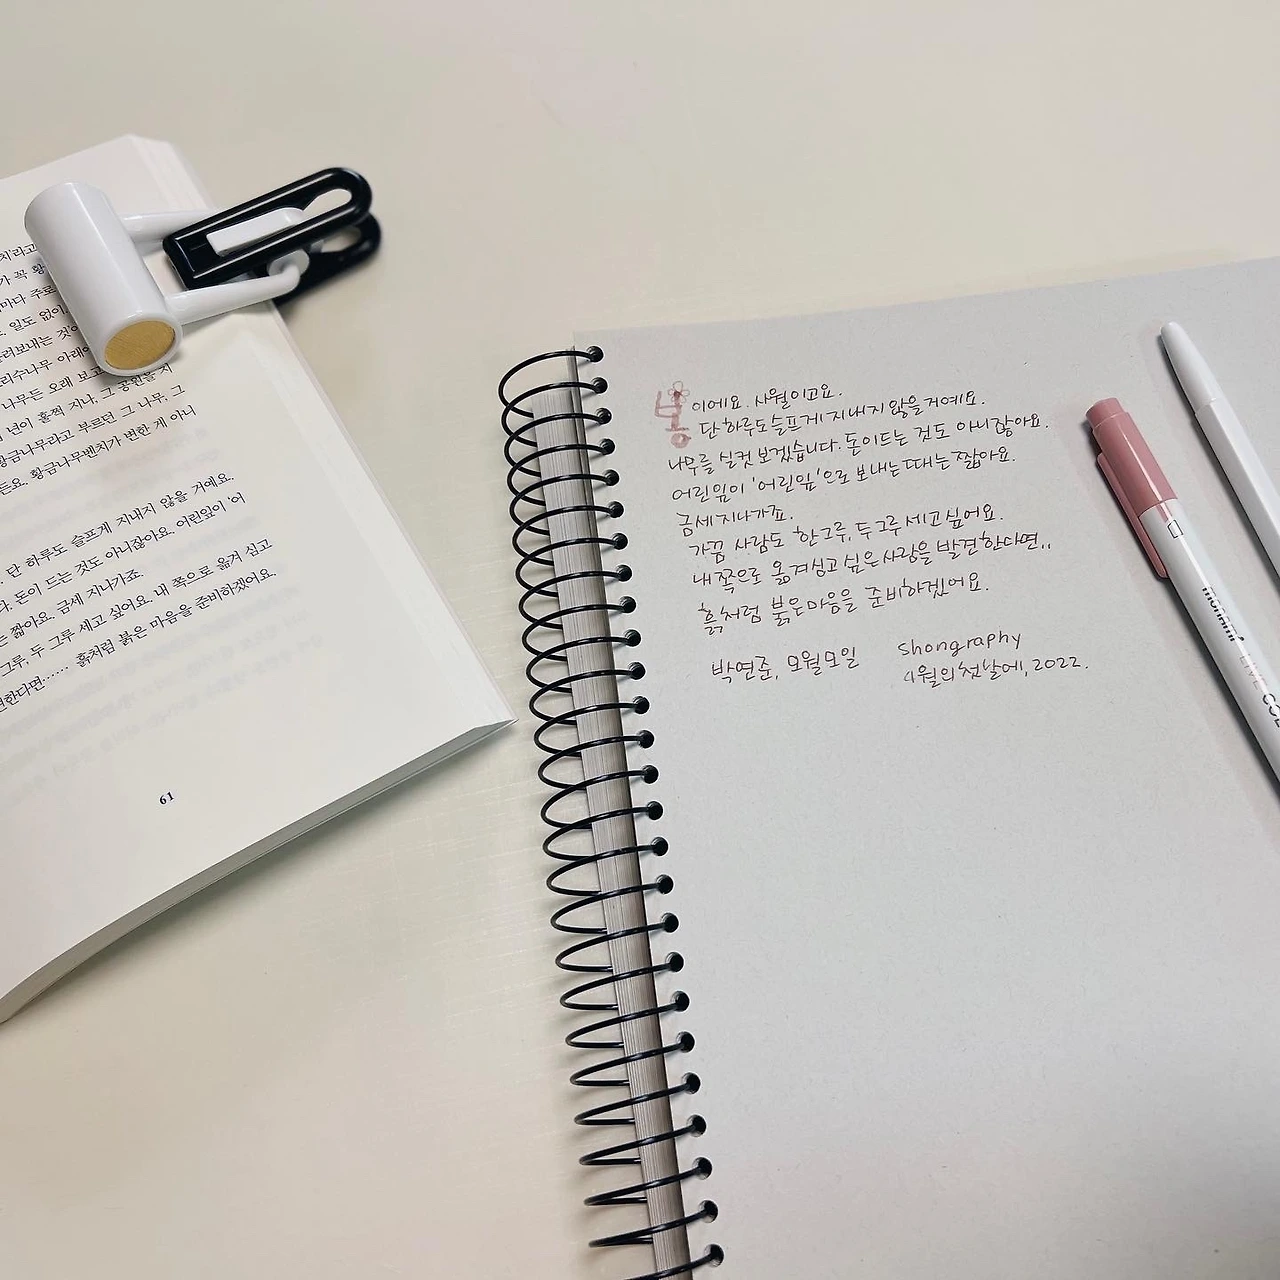 치'라고
가 꼭 황
마다 주로
일도 없이.
러보내는 것'이
리수나무 아래에
나무든 오래 보고
년이 훌쩍 지나, 그 공원을 지
황금나무라고 부르던 그 나무. 그
든요. 황금나무벤치가 변한 게 아니
단 하루도 슬프게 지내지 않을 거예요.
다. 돈이 드는 것도 아니잖아요. 어린잎이 '어
는 짧아요. 금세 지나가죠.
그루, 두 그루 세고 싶어요. 내 쪽으로 옮겨 심고
견한다면…… 흙처럼 붉은 마음을 준비하겠어요.
61
봄이에요. 사월이고요.
단 하루도 슬프게 지내지 않을거예요.
나무를 실컷 보겠습니다. 돈이드는 것도 아니잖아요.
어린잎이 '어린잎'으로 보내는 때는 짧아요.
금세 지나가죠.
가끔 사람도 한그루, 두그루 세고 싶어요.
내 쪽으로 옮겨심고 싶은 사람을 발견한다면..
흙처럼 붉은마음을 준비하겠어요.
박연준, 모월모일
shongraphy
4월의 첫날에, 2022.
monami
LIVE COL